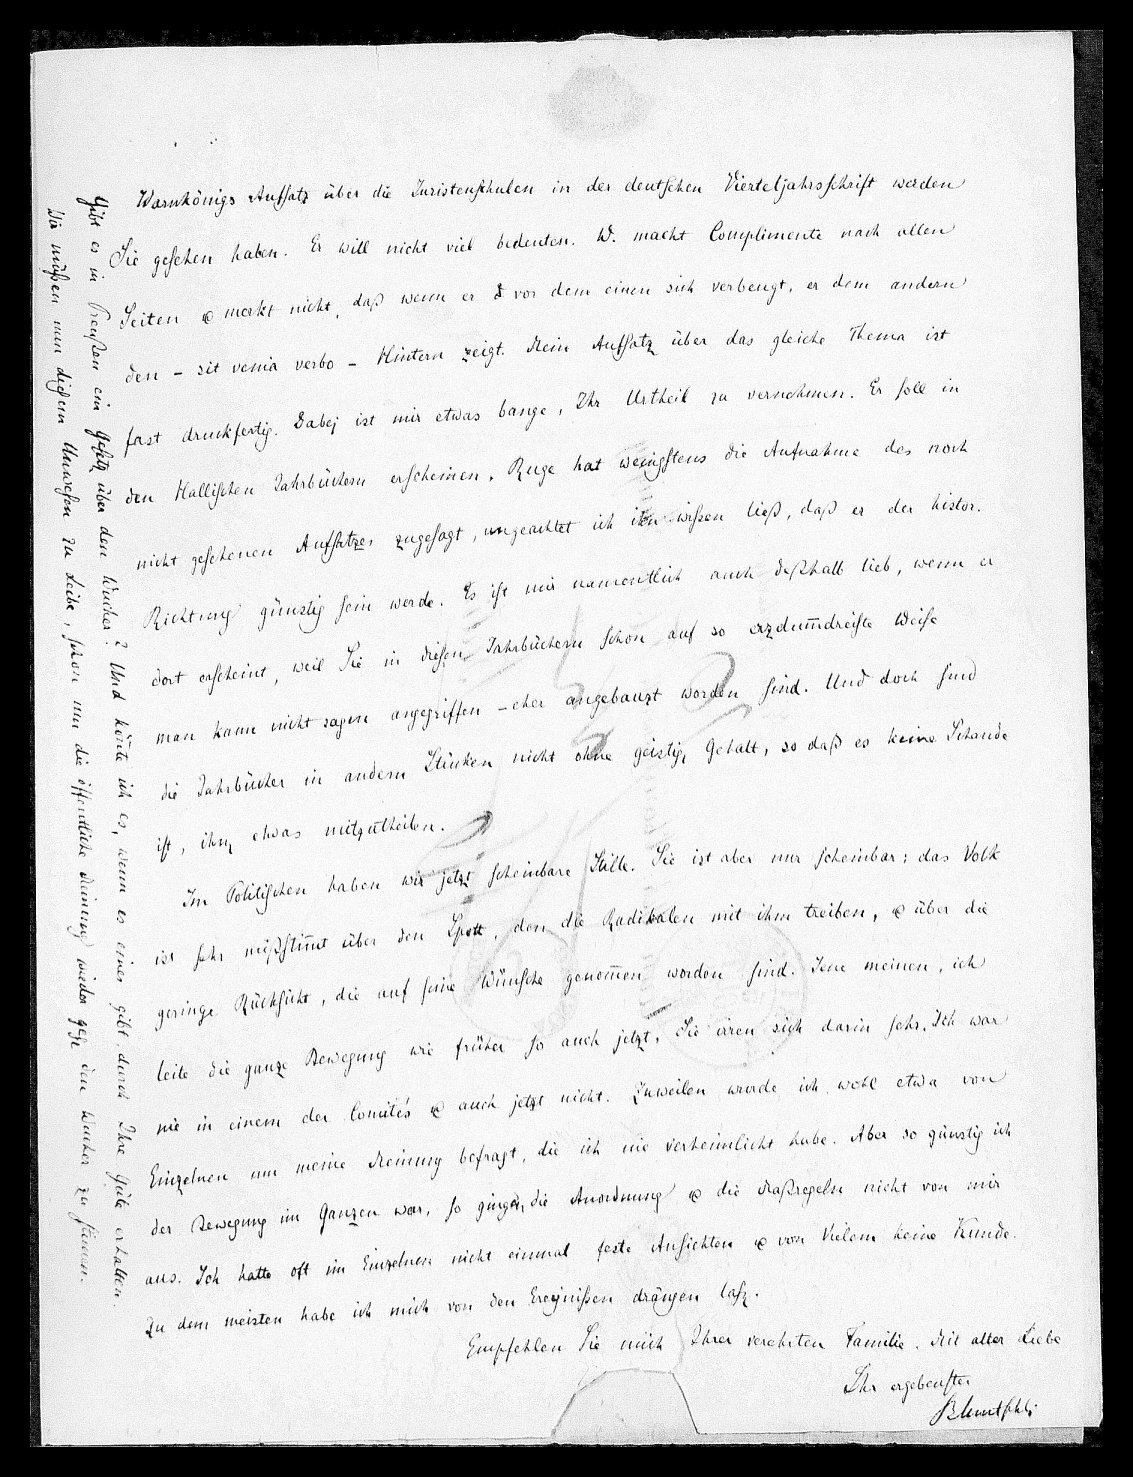 Warnkönigs Aufsatz über die Juristenschulen in der deutschen Vierteljahrsschrift werden
Sie gesehen haben. Er will nicht viel bedeuten. W. macht Complimente nach allen
Seiten & merkt nicht, daß wenn er vor dem einen sich verbeugt, er dem andern
den – sit venia verbo – Hintern zeigt. Mein Aufsatz über das gleiche Thema ist
fast druckfertig. Dabej ist mir etwas bange, Ihr Urtheil zu vernehmen. Er soll in
den Hallischen Jahrbüchern erscheinen. Ruge hat wenigstens die Aufnahme des noch
nicht gesehenen Aufsatzes zugesagt, ungeachtet ich ihn wißen ließ, daß er der histor.
Richtung günstig sein werde. Es ist mir namentlich auch deßhalb lieb, wenn er
dort erscheint, weil Sie in diesen Jahrbüchern schon auf so erzdum̅dreiste Weise
man kann nicht sagen angegriffen – eher angebauzt worden sind. Und doch sind
die Jahrbücher in andern Stücken nicht ohne geistig. Gehalt, so daß es keine Schande
ist, ihn etwas mitzutheilen.
Im Politischen haben wir jetzt scheinbare Stille. Sie ist aber nur scheinbar; das Volk
ist sehr mißstim̅t über den Spott, den die Radikalen mit ihm treiben, & über die
geringe Rücksicht, die auf seine Wünsche genom̅en worden sind. Jene meinen, ich
leite die ganze Bewegung wie früher so auch jetzt. Sie irren sich darin sehr. Ich war
nie in einem der Comités & auch jetzt nicht. Zuweilen wurde ich wohl etwa von
Einzelnen um meine Meinung befragt, die ich nie verheimlicht habe. Aber so günstig ich
der Bewegung im Ganzen war, so gingen die Anordnung & die Maßregeln nicht von mir
aus. Ich hatte oft im Einzelnen nicht einmal feste Ansichten & von Vielem keine Kunde.
Zu dem meisten habe ich mich von den Ereignißen drängen laß.
Empfehlen Sie mich Ihrer verehrten Familie. Mit alter Liebe
Ihr ergebenster
Bluntschli
Gibt es in Preußen ein Gesetz über den Wucher? Und kön̅te ich es, wenn es eines gibt durch Ihre Güte erhalten.
Wir müßen nun diesem Unwesen zu Leibe, schon um die öffentliche Meinung wieder gege den Wucher zu